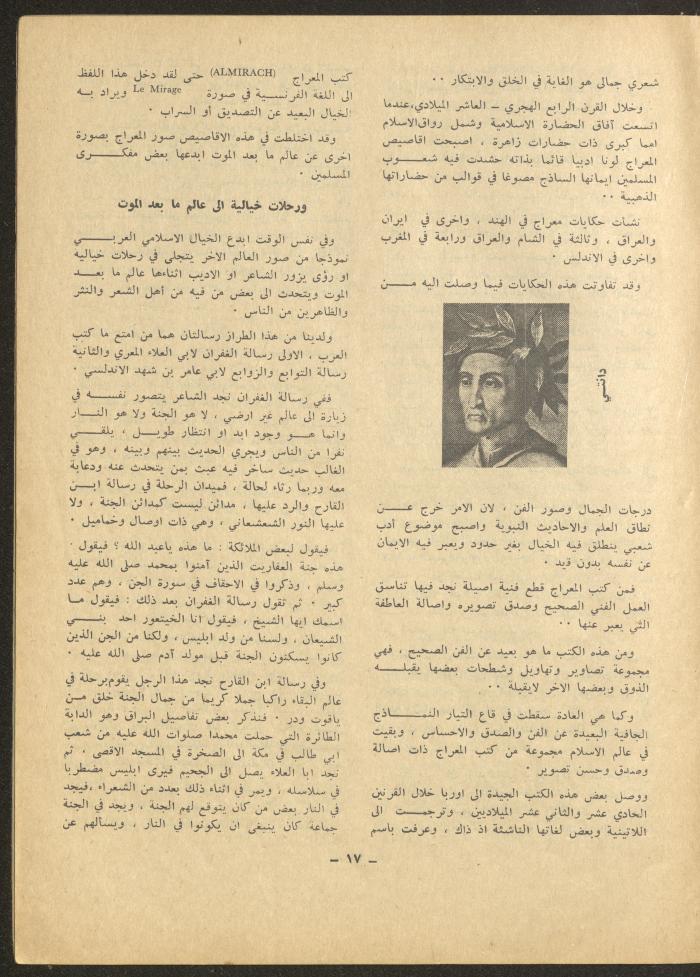 شعري جمالي هو الغاية في الخلق والابتكار ٠٠
وخلال القرن الرابع الهجري – العاشر الميلادي،عندما
اتسعت آفاق الحضارة الاسلامية وشمل رواق الاسلام
امما كبرى ذات حضارات زاهرة ، اصبحت اقاصيص
المعراج لونا ادبيا قائما بذاته حشدت فيه شعوب
المسلمين ايمانها الساذج مصوغا في قوالب من حضاراتها
الذهبية ٠٠
نشأت حكايات معراج في الهند ، واخرى في ايران
والعراق ، وثالثة في الشام والعراق ورابعة في المغرب
واخرى في الاندلس ٠
وقد تفاوتت هذه الحكايات فيما وصلت اليه من
دانتي
درجات الجمال وصور الفن ، لان الامر خرج عن
نطاق العلم والاحاديث النبوية واصبح موضوع أدب
شعبي ينطلق فيه الخيال بغير حدود ويعبر فيه الايمان
عن نفسه بدون قيد ٠
فمن كتب المعراج قطع فنية اصيلة نجد فيها تناسق
العمل الفني الصحيح وصدق تصويره واصالة العاطفة
التي يعبر عنها ٠٠
ومن هذه الكتب ما هو بعيد عن الفن الصحيح ، فهي
مجموعة تصاوير وتهاويل وشطحات بعضها يقبله
الذوق وبعضها الاخر لايقبلة ٠٠
وكما هي العادة سقطت في قاع التيار النماذج
الجافية البعيدة عن الفن والصدق والاحساس ، وبقيت
في عالم الاسلام مجموعة من كتب المعراج ذات اصالة
وصدق وحسن تصوير ٠
ووصل بعض هذه الكتب الجيدة الى اوربا خلال القرنين
الحادي عشر والثاني عشر الميلاديين ، وترجمت الى
اللاتينية وبعض لغاتها الناشئة اذ ذاك ، وعرفت باسم
كتب المعراج (ALMIRACH) حتى لقد دخل هذا اللفظ
الى اللغة الفرنسية في صورة Le Mirage ويراد به
الخيال البعيد عن التصديق أو السراب ٠
وقد اختلطت في هذه الاقاصيص صور المعراج بصورة
اخرى عن عالم ما بعد الموت ابدعها بعض مفكرى
المسلمين ٠
ورحلات خيالية الى عالم ما بعد الموت
وفي نفس الوقت ابدع الخيال الاسلامي العربي
نموذجا من صور العالم الاخر يتجلى في رحلات خياليه
او رؤى يزور الشاعر او الاديب اثناءها عالم ما بعد
الموت ويتحدث الى بعض من فيه من أهل الشعر والنثر
والظاهرين من الناس ٠
ولدينا من هذا الطراز رسالتان هما من امتع ما كتب
العرب ، الاولى رسالة الغفران لابي العلاء المعري والثانية
رسالة التوابع والزوابع لابي عامر بن شهد الاندلسي ٠
ففي رسالة الغفران نجد الشاعر يتصور نفسه في
زيارة الى عالم غير ارضي ، لا هو الجنة ولا هو النار
وانما هو وجود ابد او انتظار طويل ، يلقي
نفرا من الناس ويجري الحديث بينهم وبينه ، وهو في
الغالب حديث ساخر فيه عبث بمن يتحدث عنه ودعابة
معه وربما رثاء لحالة ، فميدان الرحلة في رسالة ابن
القارح والرد عليها ، مدائن ليست كمدائن الجنة ، ولا
عليها النور الشعشعاني ، وهي ذات اوصال وخماميل ٠
فيقول لبعض الملائكة : ما هذه ياعبد الله ؟ فيقول ٠
هذه جنة العفاريت الذين آمنوا بمحمد صلى الله عليه
وسلم ، وذكروا في الاحقاف في سورة الجن ، وهم عدد
كبير ٠ ثم تقول رسالة الغفران بعد ذلك : فيقول ما
اسمك ايها الشيخ ، فيقول انا الخيتعور احد بني
الشيعان ، ولسنا من ولد ابليس ، ولكنا من الجن الذين
كانوا يسكنون الجنة قبل مولد آدم صلى الله عليه ٠
وفي رسالة ابن القارح نجد هذا الرجل يقوم برحلة في
عالم البقاء راكبا جملا كريما من جمال الجنة خلق من
ياقوت ودر ٠ فنذكر بعض تفاصيل البراق وهو الدابة
الطائرة التي حملت محمدا صلوات الله عليه من شعب
ابي طالب في مكة الى الصخرة في المسجد الاقصى ٠ ثم
نجد ابا العلاء يصل الى الجحيم فيرى ابليس مضطربا
في سلاسله ، ويمر في اثناء ذلك بعدد من الشعراء ،فيجد
في النار بعض من كان يتوقع لهم الجنة ، ويجد في الجنة
جماعة كان ينبغى ان يكونوا في النار ، ويسألهم عن
– ١٧ –